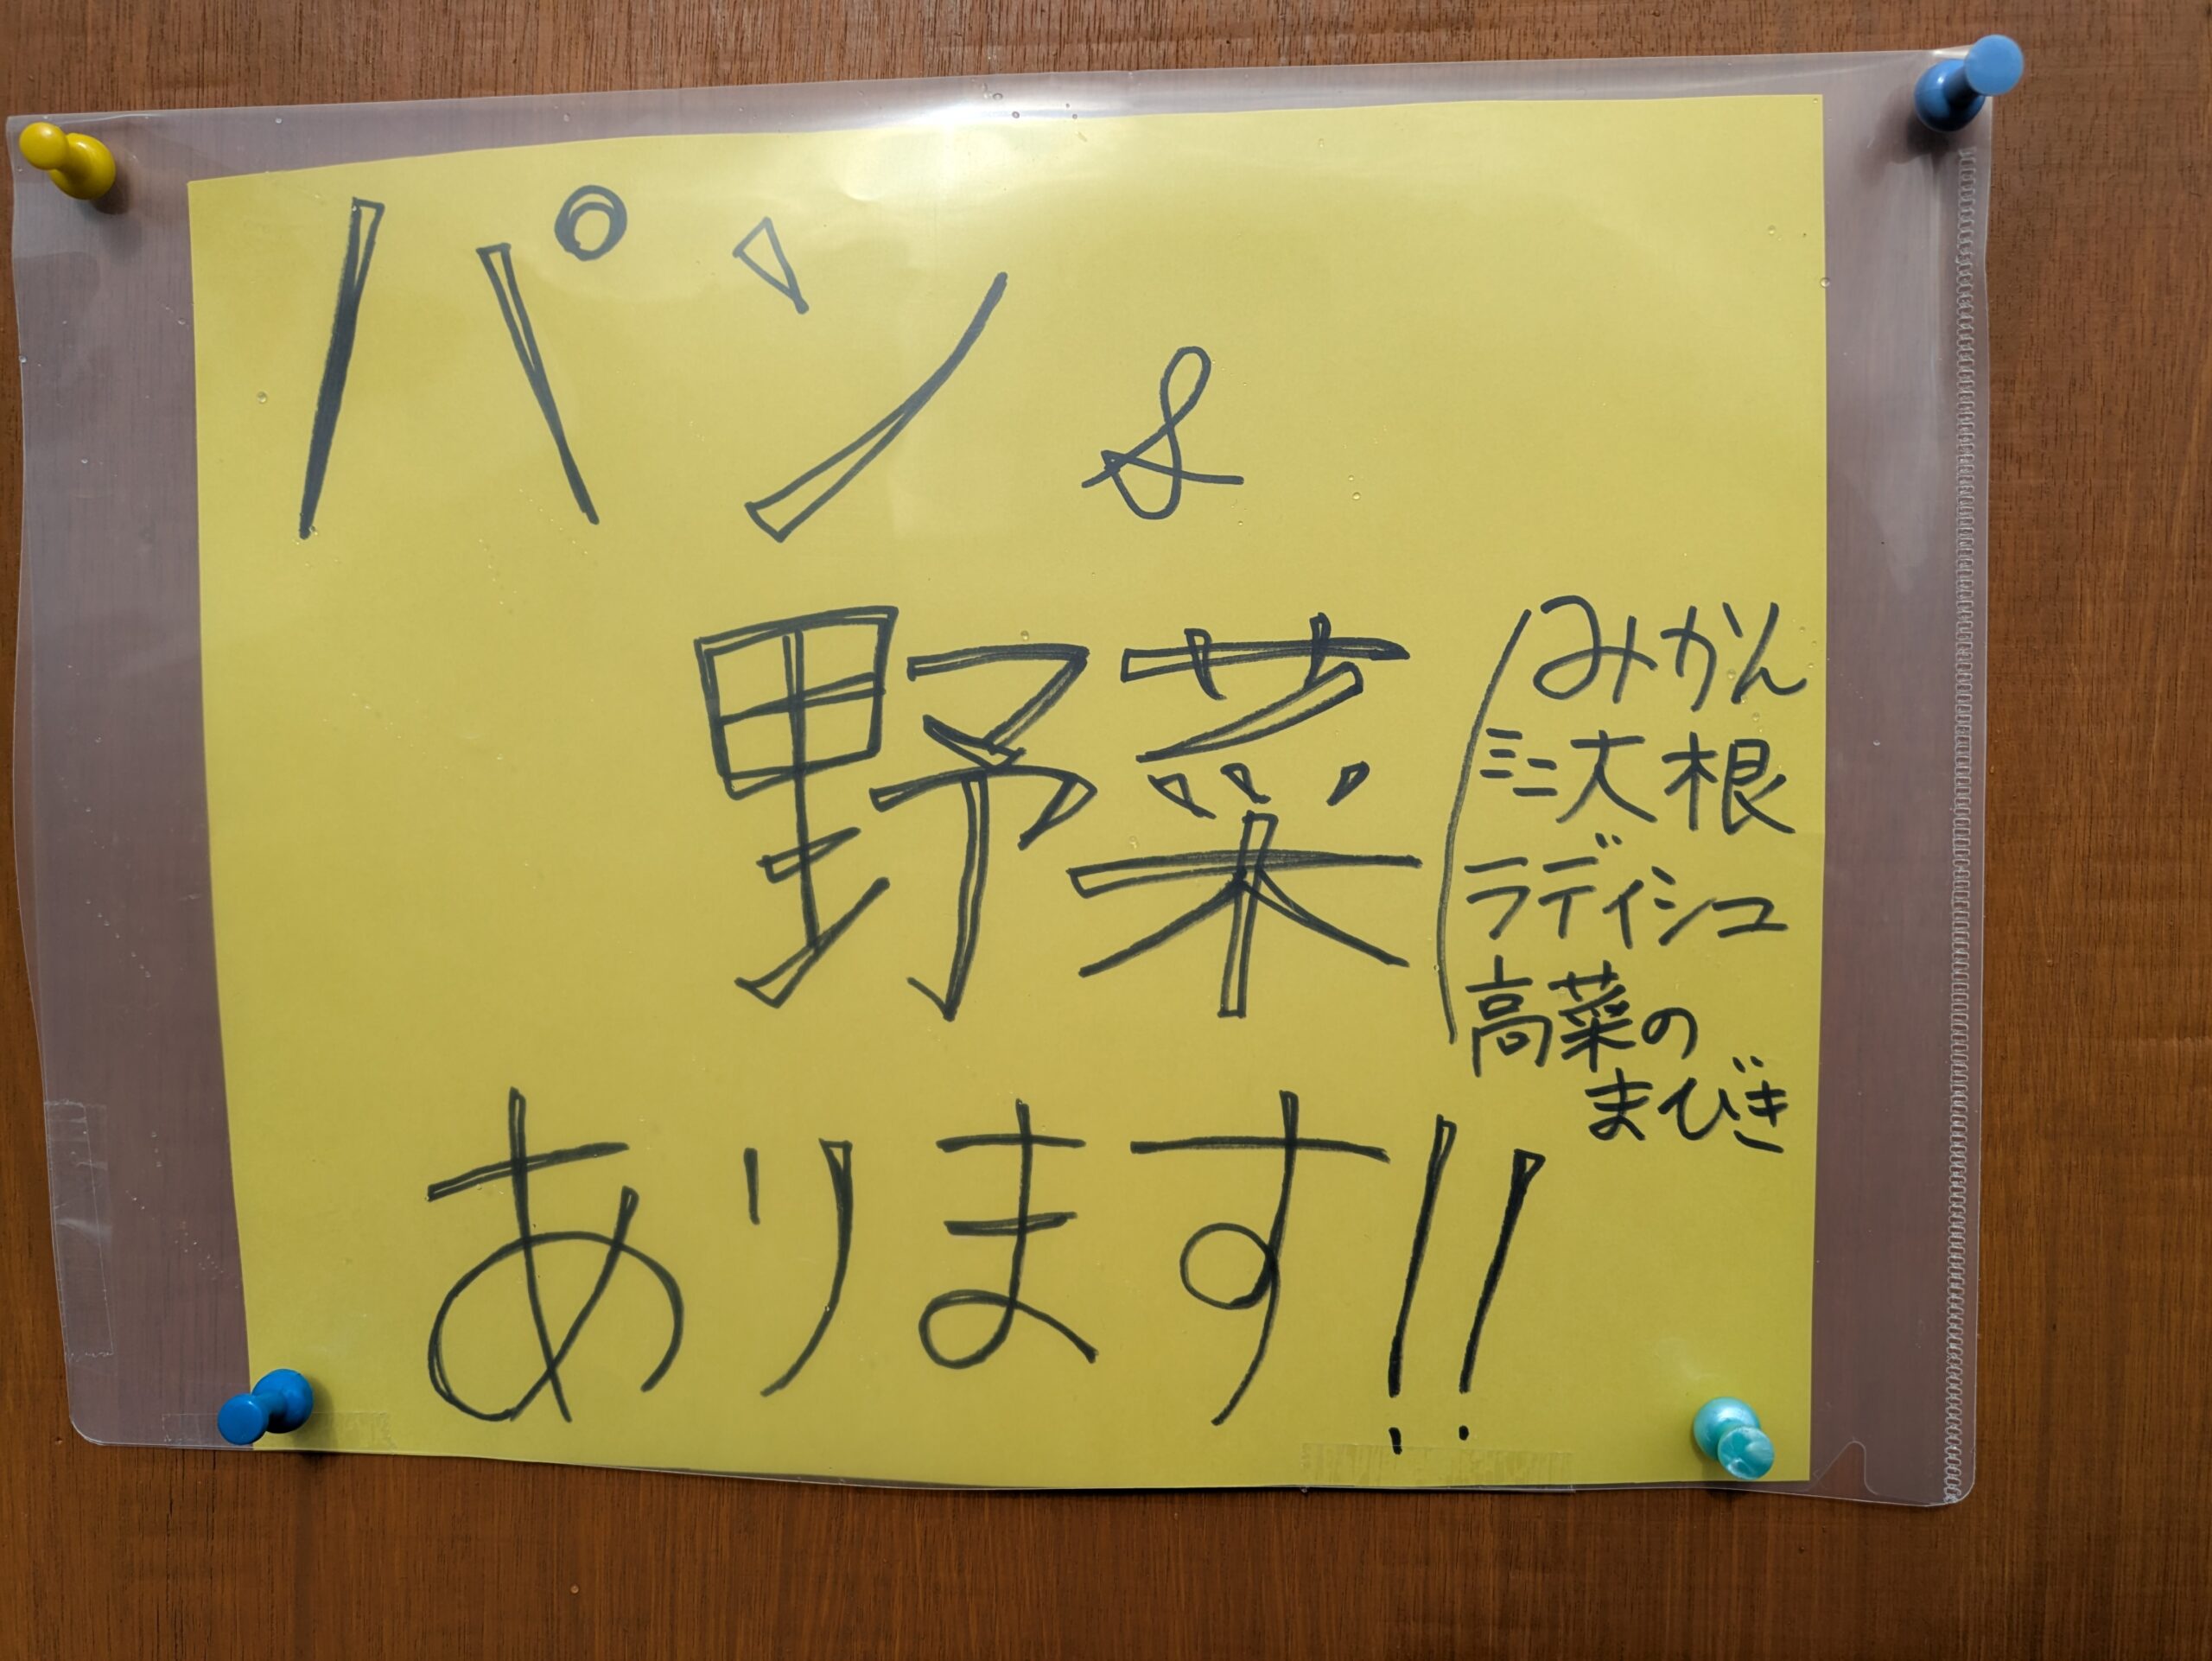 パン&
野菜
(みかん
ミニ大根
ラディシュ
高菜の
まびき
あります!!